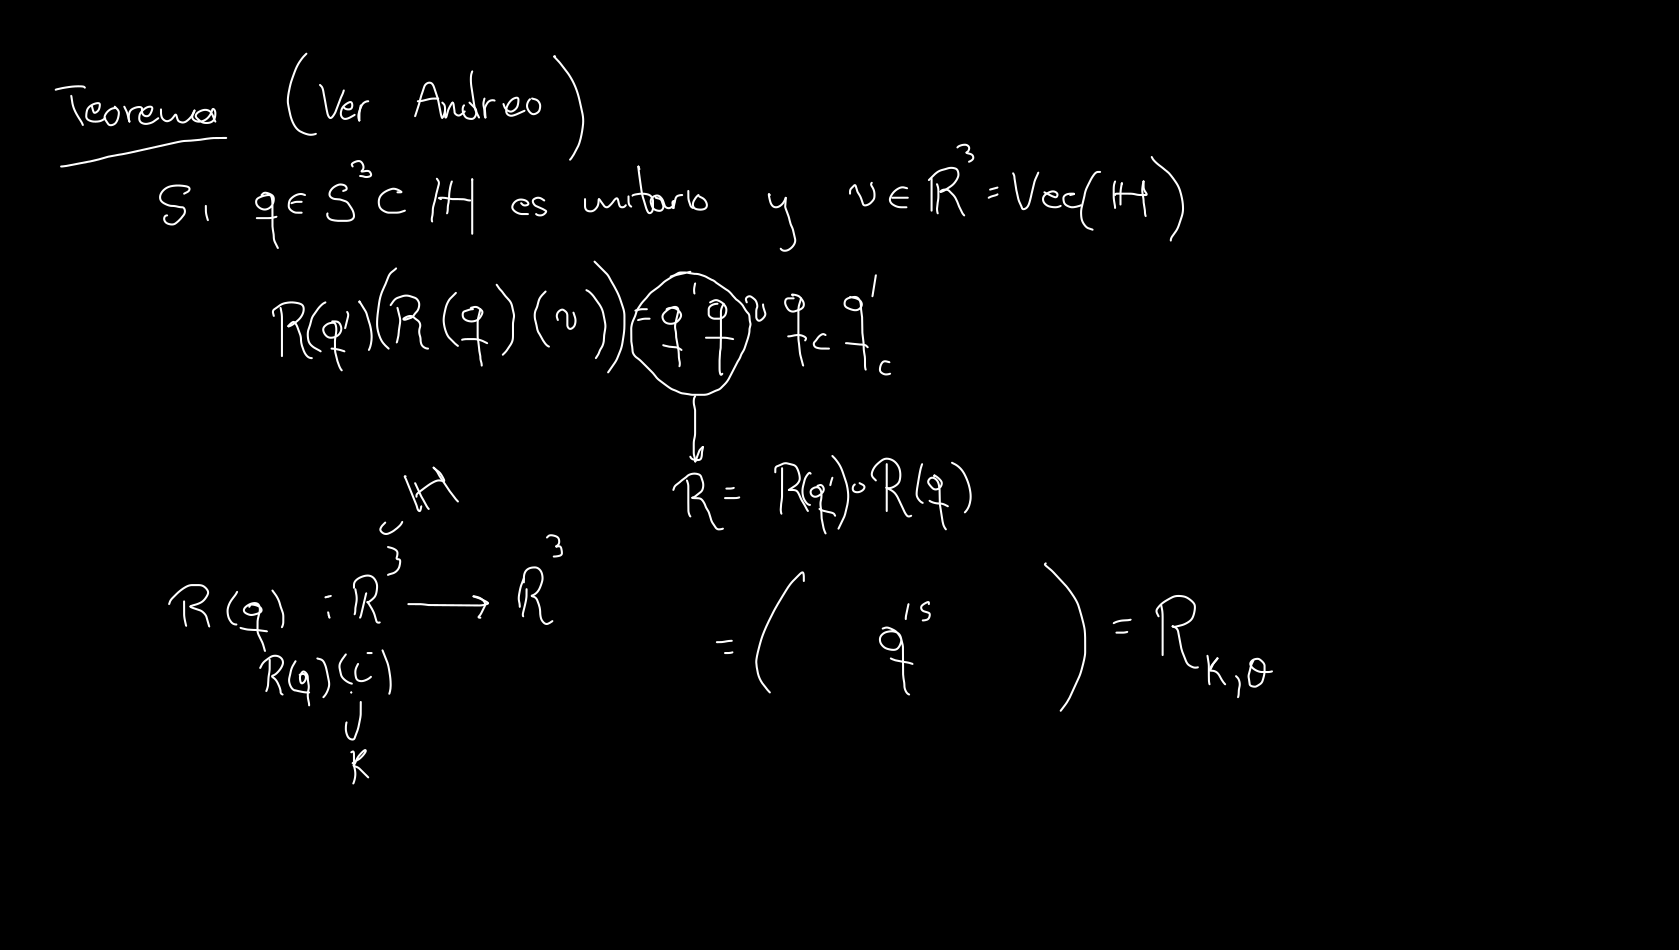 Teorema (Ver Andreo)
Si q ∈ S³ ⊂ ℍ es unitario y v ∈ ℝ³ = Vec(ℍ)
R(q')(R(q)(v)) = q' q v q_c q'_c
R = R(q') ∘ R(q)
R(q) : ℝ³ ⊂ ℍ ⟶ ℝ³
R(q)(i)
j
k
= ( q's ) = R_{K,θ}